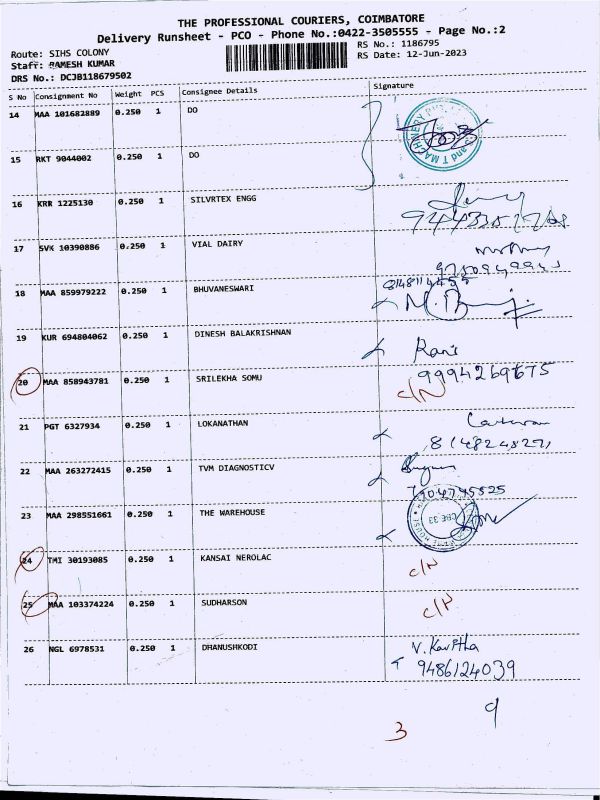 THE PROFESSIONAL COURIERS, COIMBATORE
Delivery Runsheet - PCO - Phone No.:0422-3505555 - Page No.:2
Route: SIHS COLONY
RS No.: 1186795
Staff: RAMESH KUMAR
RS Date: 12-Jun-2023
DRS No.: DCJB118679502
S No Consignment No Weight PCS Consignee Details Signature
14 MAA 101682889 0.250 1 DO
15 RKT 9044002 0.250 1 DO
16 KRR 1225130 0.250 1 SILVRTEX ENGG
17 SVK 10390886 0.250 1 VIAL DAIRY
18 MAA 859979222 0.250 1 BHUVANESWARI
19 KUR 694804062 0.250 1 DINESH BALAKRISHNAN
Rani
9994269675
20 MAA 858943781 0.250 1 SRILEKHA SOMU C/N
21 PGT 6327934 0.250 1 LOKANATHAN
22 MAA 263272415 0.250 1 TVM DIAGNOSTICV
7904745525
23 MAA 298551661 0.250 1 THE WAREHOUSE
CBE 33
24 TMI 30193085 0.250 1 KANSAI NEROLAC C/N
25 MAA 103374224 0.250 1 SUDHARSON C/N
26 NGL 6978531 0.250 1 DHANUSHKODI V. Kavitha
9486124039
3 9